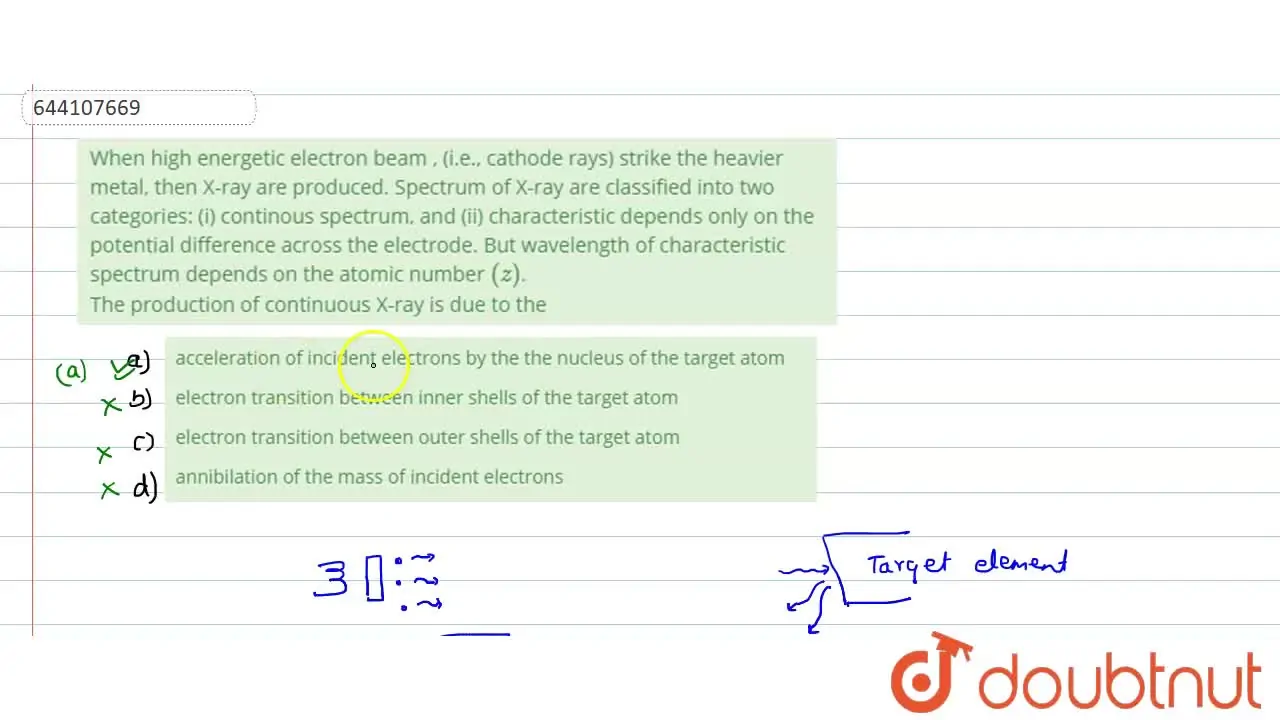 644107669
When high energetic electron beam , (i.e., cathode rays) strike the heavier
metal, then X-ray are produced. Spectrum of X-ray are classified into two
categories: (i) continous spectrum, and (ii) characteristic depends only on the
potential difference across the electrode. But wavelength of characteristic
spectrum depends on the atomic number (z).
The production of continuous X-ray is due to the
(a) a) acceleration of incident electrons by the the nucleus of the target atom
b) electron transition between inner shells of the target atom
c) electron transition between outer shells of the target atom
d) annibilation of the mass of incident electrons
Target element
doubtnut